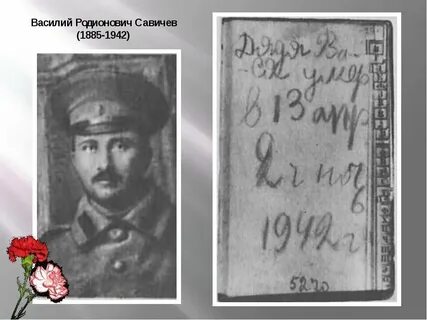 Василий Родионович Савичев
(1885-1942)
Дядя Ва-
ся умер
в 13 апр
2 ч ноч
1942 г